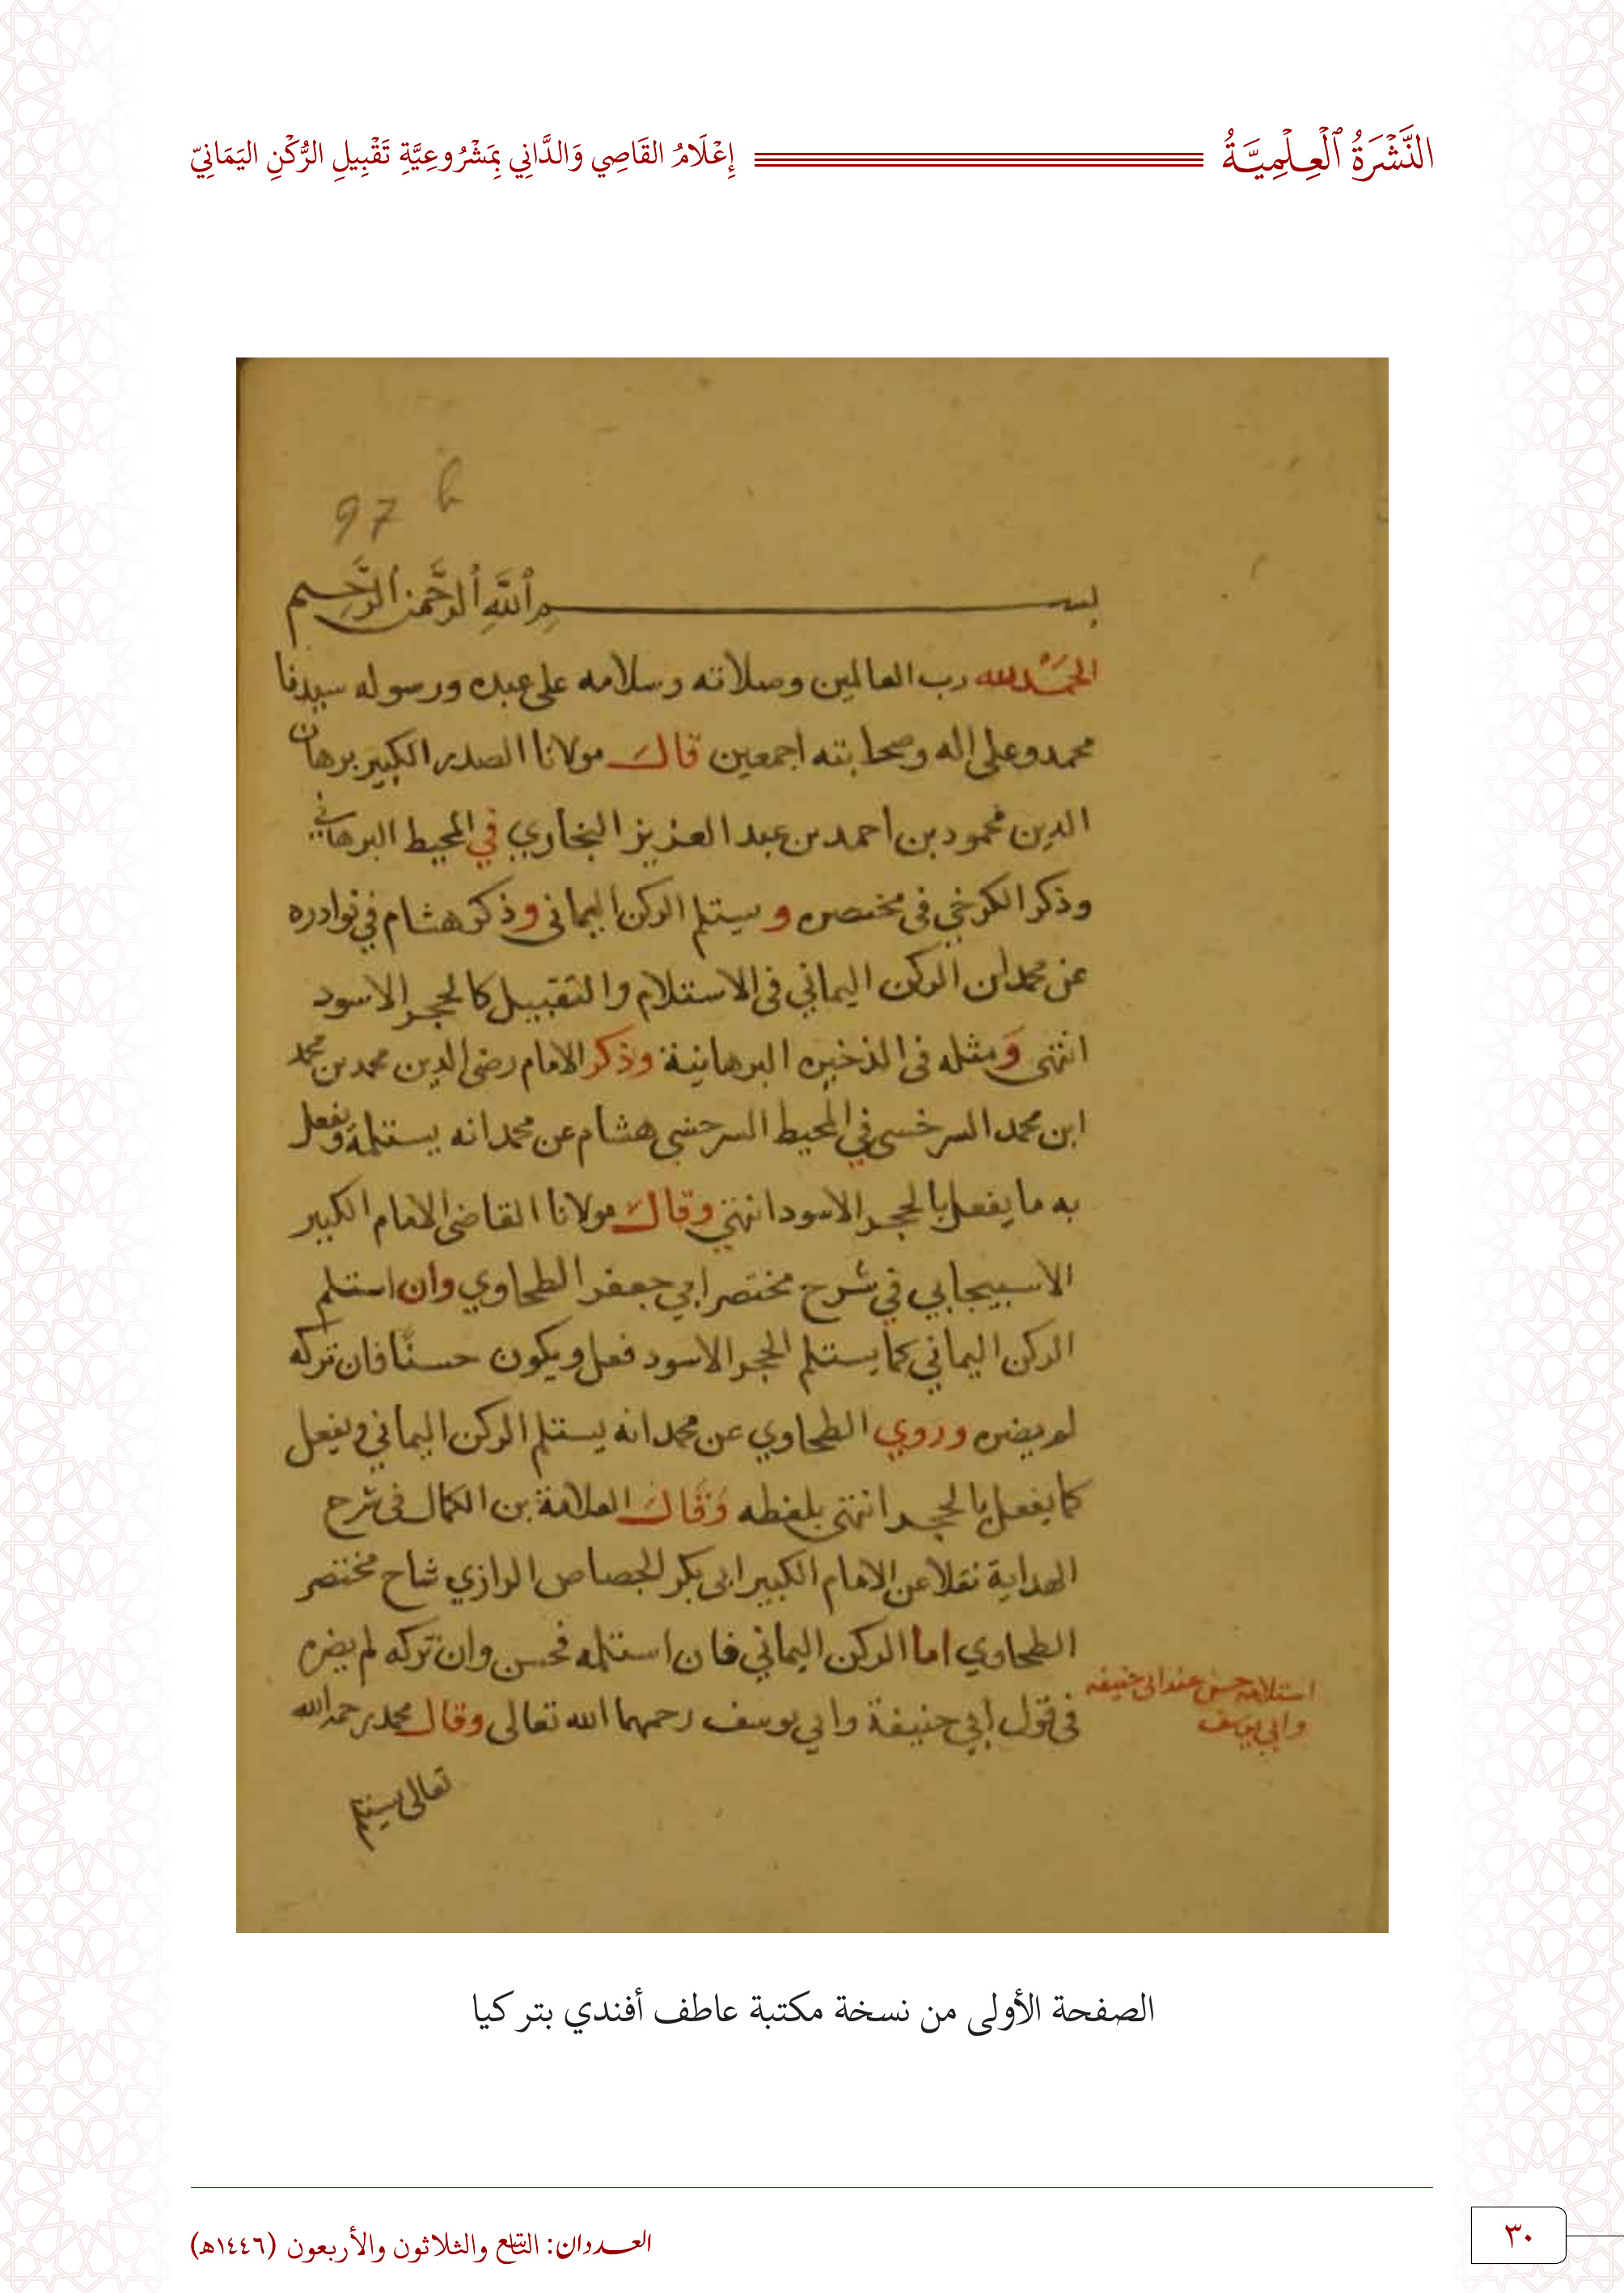 النَّشْرَةُ ٱلْعِلْمِيَّةُ
إِعْلَامُ القَاصِي وَالدَّانِي بِمَشْرُوعِيَّةِ تَقْبِيلِ الرُّكْنِ اليَمَانِيّ
97 b
بسم ٱللَّهِ ٱلرَّحْمن ٱلرَّحِيم
الحَمْد لله رب العالمين وصلاته وسلامه على عبده ورسوله سيدنا
محمد وعلى اله وصحابته اجمعين قال مولانا الصدر الكبير برهان
الدين محمود بن احمد بن عبد العزيز البخاري في المحيط البرهاني
وذكر الكرخي في مختصره ويستلم الركن اليماني وذكر هشام في نوادره
عن محمد ان الركن اليماني في الاستلام والتقبيل كالحجر الاسود
انتهى وَمثله في الذخيره البرهانية وذكر الامام رضي الدين محمد بن محمد
ابن محمد السرخسي في المحيط السرخسي هشام عن محمد انه يستلمه ويفعل
به ما يفعل بالحجر الاسود انتهي وقال مولانا القاضى الامام الكبير
الاسبيجابي في شرح مختصر ابي جعفر الطحاوي وان استلم
الركن اليماني كما يستلم الحجر الاسود فعل ويكون حسنًا فان تركه
لم يضره وروي الطحاوي عن محمد انه يستلم الركن اليماني ويفعل
كما يفعل بالحجر انتهى بلفظه وَقال العلامة بن الكمال في شرح
الهداية نقلا عن الامام الكبير ابى بكر الجصاص الرازي شاح مختصر
الطحاوي اما الركن اليماني فان استلمه فحسن وان تركه لم يضره
في قول ابي حنيفة وابي يوسف رحمهما الله تعالى وقال محمد رحمه الله
تعالى يستلم
استلامه حسن عند ابى حنيفه
وابي يوسف
الصفحة الأولى من نسخة مكتبة عاطف أفندي بتركيا
العـددان: التاسع والثلاثون والأربعون (١٤٤٦هـ)
٣٠